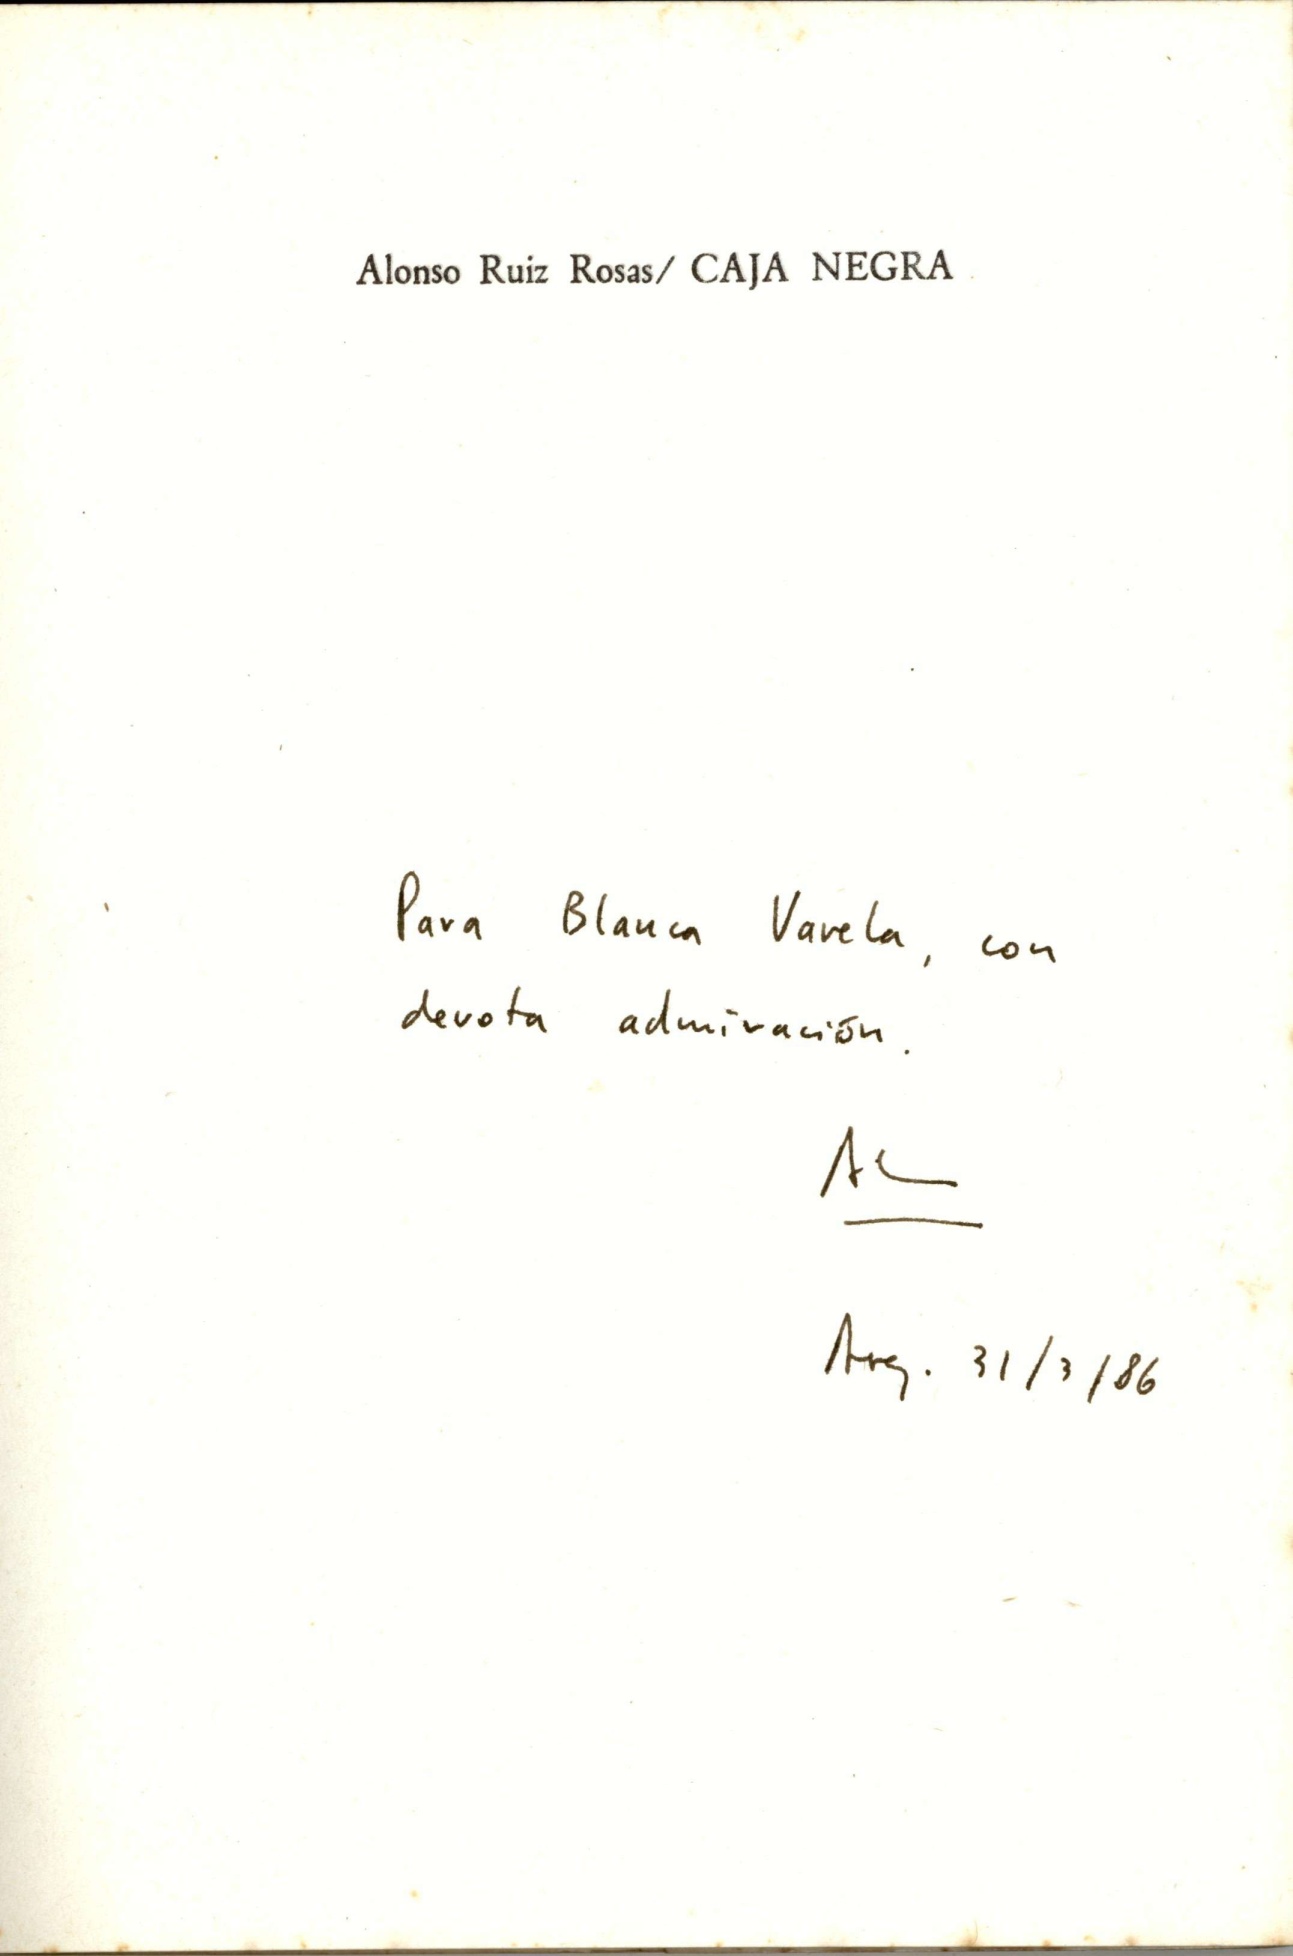 Alonso Ruiz Rosas/ CAJA NEGRA
Para Blanca Varela, con
devota admiración.
Areq. 31/3/86